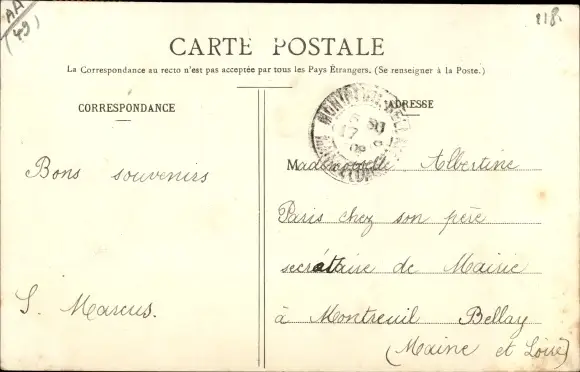 AA
(49)
218.
CARTE POSTALE
La Correspondance au recto n'est pas acceptée par tous les Pays Étrangers. (Se renseigner à la Poste.)
CORRESPONDANCE
Bons souvenirs
S. Marcus.
ADRESSE
Mademoiselle Albertine
Paris chez son père
secrétaire de Mairie
à Montreuil Bellay
(Maine et Loire)